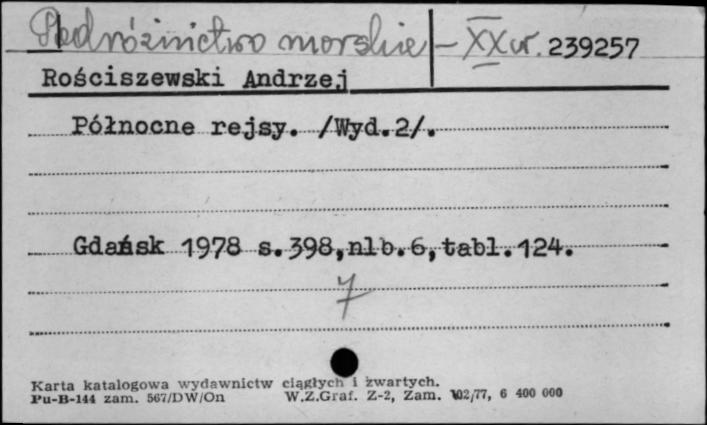 Podróżnictwo morskie - XX w. 239257
Rościszewski Andrzej
Północne rejsy. /Wyd.2/.
Gdańsk 1978 s.398,nlb.6,tabl.124.
7
Karta katalogowa wydawnictw ciągłych i zwartych.
Pu-B-144 zam. 567/DW/On W.Z.Graf. Z-2, Zam. 102/77, 6 400 000